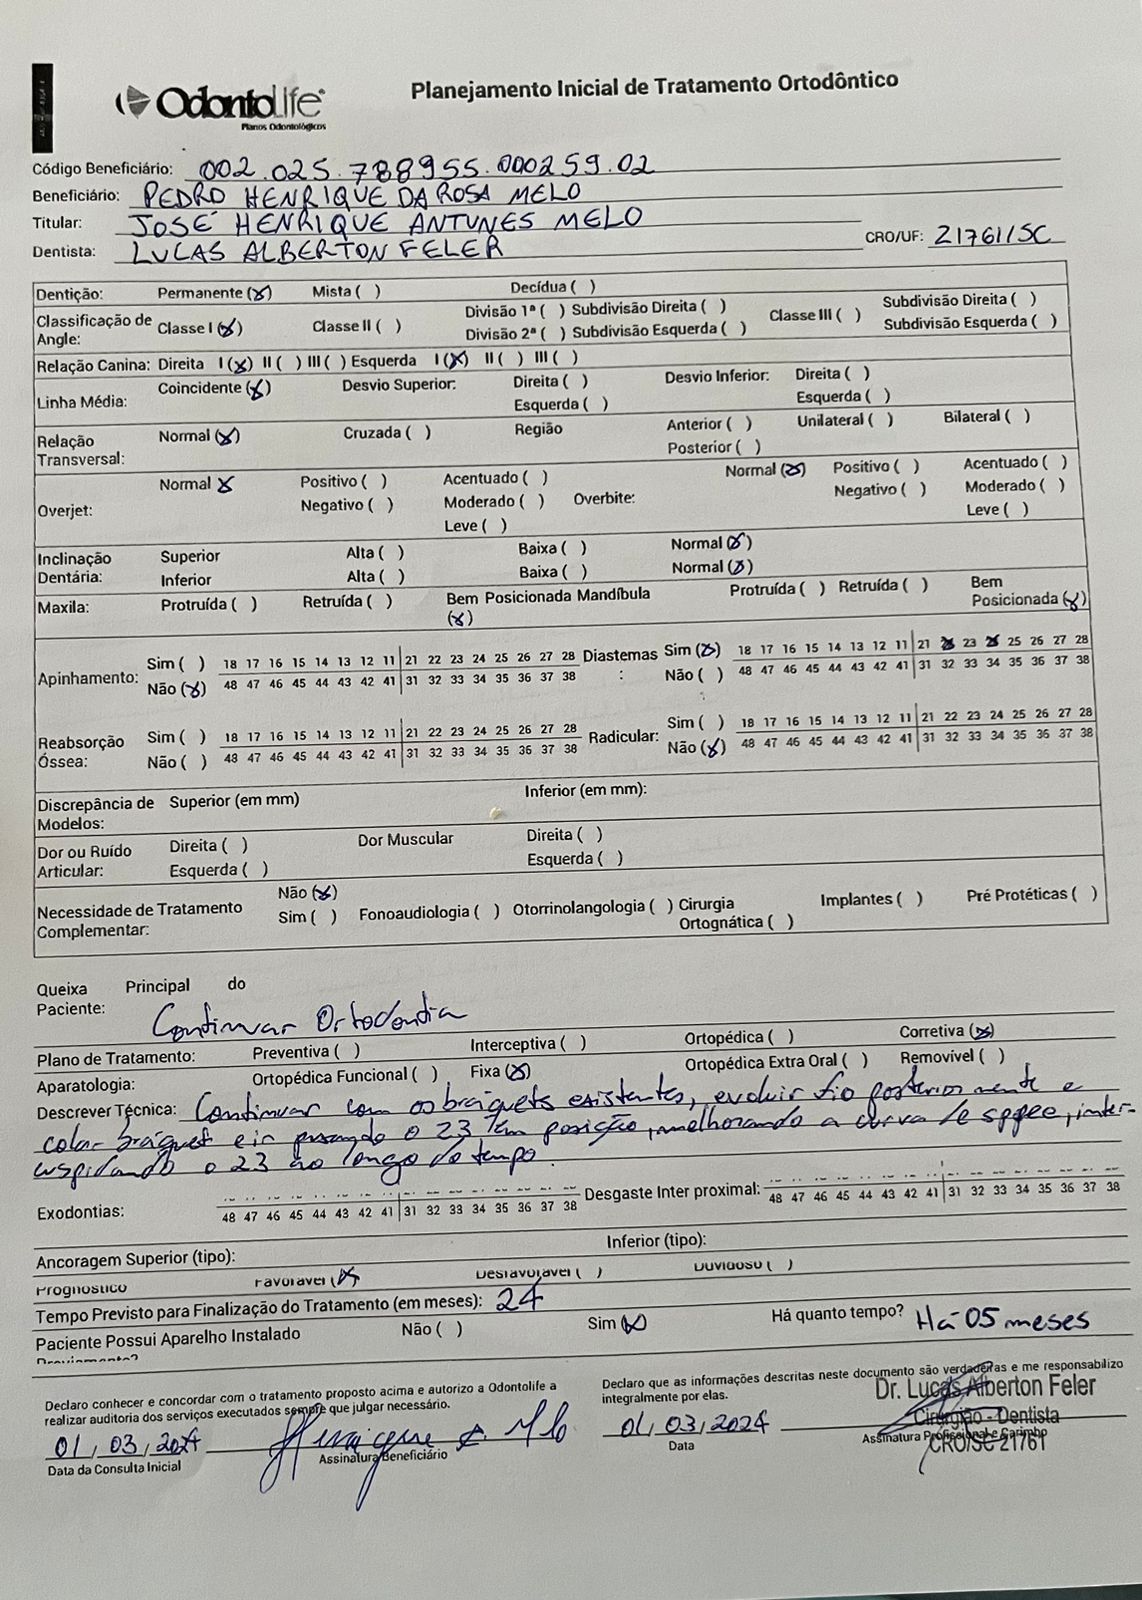 OdontoLife
Planos Odontológicos
Planejamento Inicial de Tratamento Ortodôntico
Código Beneficiário: 002.025.788955.000259.02
Beneficiário: PEDRO HENRIQUE DA ROSA MELO
Titular: JOSÉ HENRIQUE ANTUNES MELO
Dentista: LUCAS ALBERTON FELER CRO/UF: 21761/SC
Dentição: Permanente (x) Mista ( ) Decídua ( )
Classificação de Angle: Classe I (x) Classe II ( ) Divisão 1ª ( ) Subdivisão Direita ( ) Classe III ( ) Subdivisão Direita ( )
Divisão 2ª ( ) Subdivisão Esquerda ( ) Subdivisão Esquerda ( )
Relação Canina: Direita I (x) II ( ) III ( ) Esquerda I (x) II ( ) III ( )
Linha Média: Coincidente (x) Desvio Superior: Direita ( ) Desvio Inferior: Direita ( )
Esquerda ( ) Esquerda ( )
Relação Transversal: Normal (x) Cruzada ( ) Região Anterior ( ) Unilateral ( ) Bilateral ( )
Posterior ( )
Overjet: Normal x Positivo ( ) Acentuado ( ) Overbite: Normal (x) Positivo ( ) Acentuado ( )
Negativo ( ) Moderado ( ) Negativo ( ) Moderado ( )
Leve ( ) Leve ( )
Inclinação Dentária: Superior Alta ( ) Baixa ( ) Normal (x)
Inferior Alta ( ) Baixa ( ) Normal (x)
Maxila: Protruída ( ) Retruída ( ) Bem Posicionada (x) Mandíbula Protruída ( ) Retruída ( ) Bem Posicionada (x)
Apinhamento: Sim ( ) 18 17 16 15 14 13 12 11 21 22 23 24 25 26 27 28 Diastemas : Sim (x) 18 17 16 15 14 13 12 11 21 23 25 26 27 28
Não (x) 48 47 46 45 44 43 42 41 31 32 33 34 35 36 37 38 Não ( ) 48 47 46 45 44 43 42 41 31 32 33 34 35 36 37 38
Reabsorção Óssea: Sim ( ) 18 17 16 15 14 13 12 11 21 22 23 24 25 26 27 28 Radicular: Sim ( ) 18 17 16 15 14 13 12 11 21 22 23 24 25 26 27 28
Não ( ) 48 47 46 45 44 43 42 41 31 32 33 34 35 36 37 38 Não (x) 48 47 46 45 44 43 42 41 31 32 33 34 35 36 37 38
Discrepância de Modelos: Superior (em mm) Inferior (em mm):
Dor ou Ruído Articular: Direita ( ) Dor Muscular Direita ( )
Esquerda ( ) Esquerda ( )
Necessidade de Tratamento Complementar: Não (x)
Sim ( ) Fonoaudiologia ( ) Otorrinolangologia ( ) Cirurgia Ortognática ( ) Implantes ( ) Pré Protéticas ( )
Queixa Principal do
Paciente: Continuar Ortodontia
Plano de Tratamento: Preventiva ( ) Interceptiva ( ) Ortopédica ( ) Corretiva (x)
Aparatologia: Ortopédica Funcional ( ) Fixa (x) Ortopédica Extra Oral ( ) Removível ( )
Descrever Técnica: Continuar com os bráquets existentes, evoluir fio posteriormente e
colar bráquet e ir puxando o 23 em posição, melhorando a curva de spee, inter-
cuspidando o 23 ao longo do tempo.
Exodontias: 48 47 46 45 44 43 42 41 31 32 33 34 35 36 37 38 Desgaste Inter proximal: 48 47 46 45 44 43 42 41 31 32 33 34 35 36 37 38
Ancoragem Superior (tipo): Inferior (tipo):
Prognóstico Favorável (x) Desfavorável ( ) Duvidoso ( )
Tempo Previsto para Finalização do Tratamento (em meses): 24
Paciente Possui Aparelho Instalado Não ( ) Sim (x) Há quanto tempo? Há 05 meses
Previamente?
Declaro conhecer e concordar com o tratamento proposto acima e autorizo a Odontolife a
realizar auditoria dos serviços executados sempre que julgar necessário.
01/03/2024
Data da Consulta Inicial Assinatura Beneficiário
Declaro que as informações descritas neste documento são verdadeiras e me responsabilizo
integralmente por elas.
01/03/2024
Data Assinatura Profissional e Carimbo
Dr. Lucas Alberton Feler
Cirurgião - Dentista
CRO/SC 21761